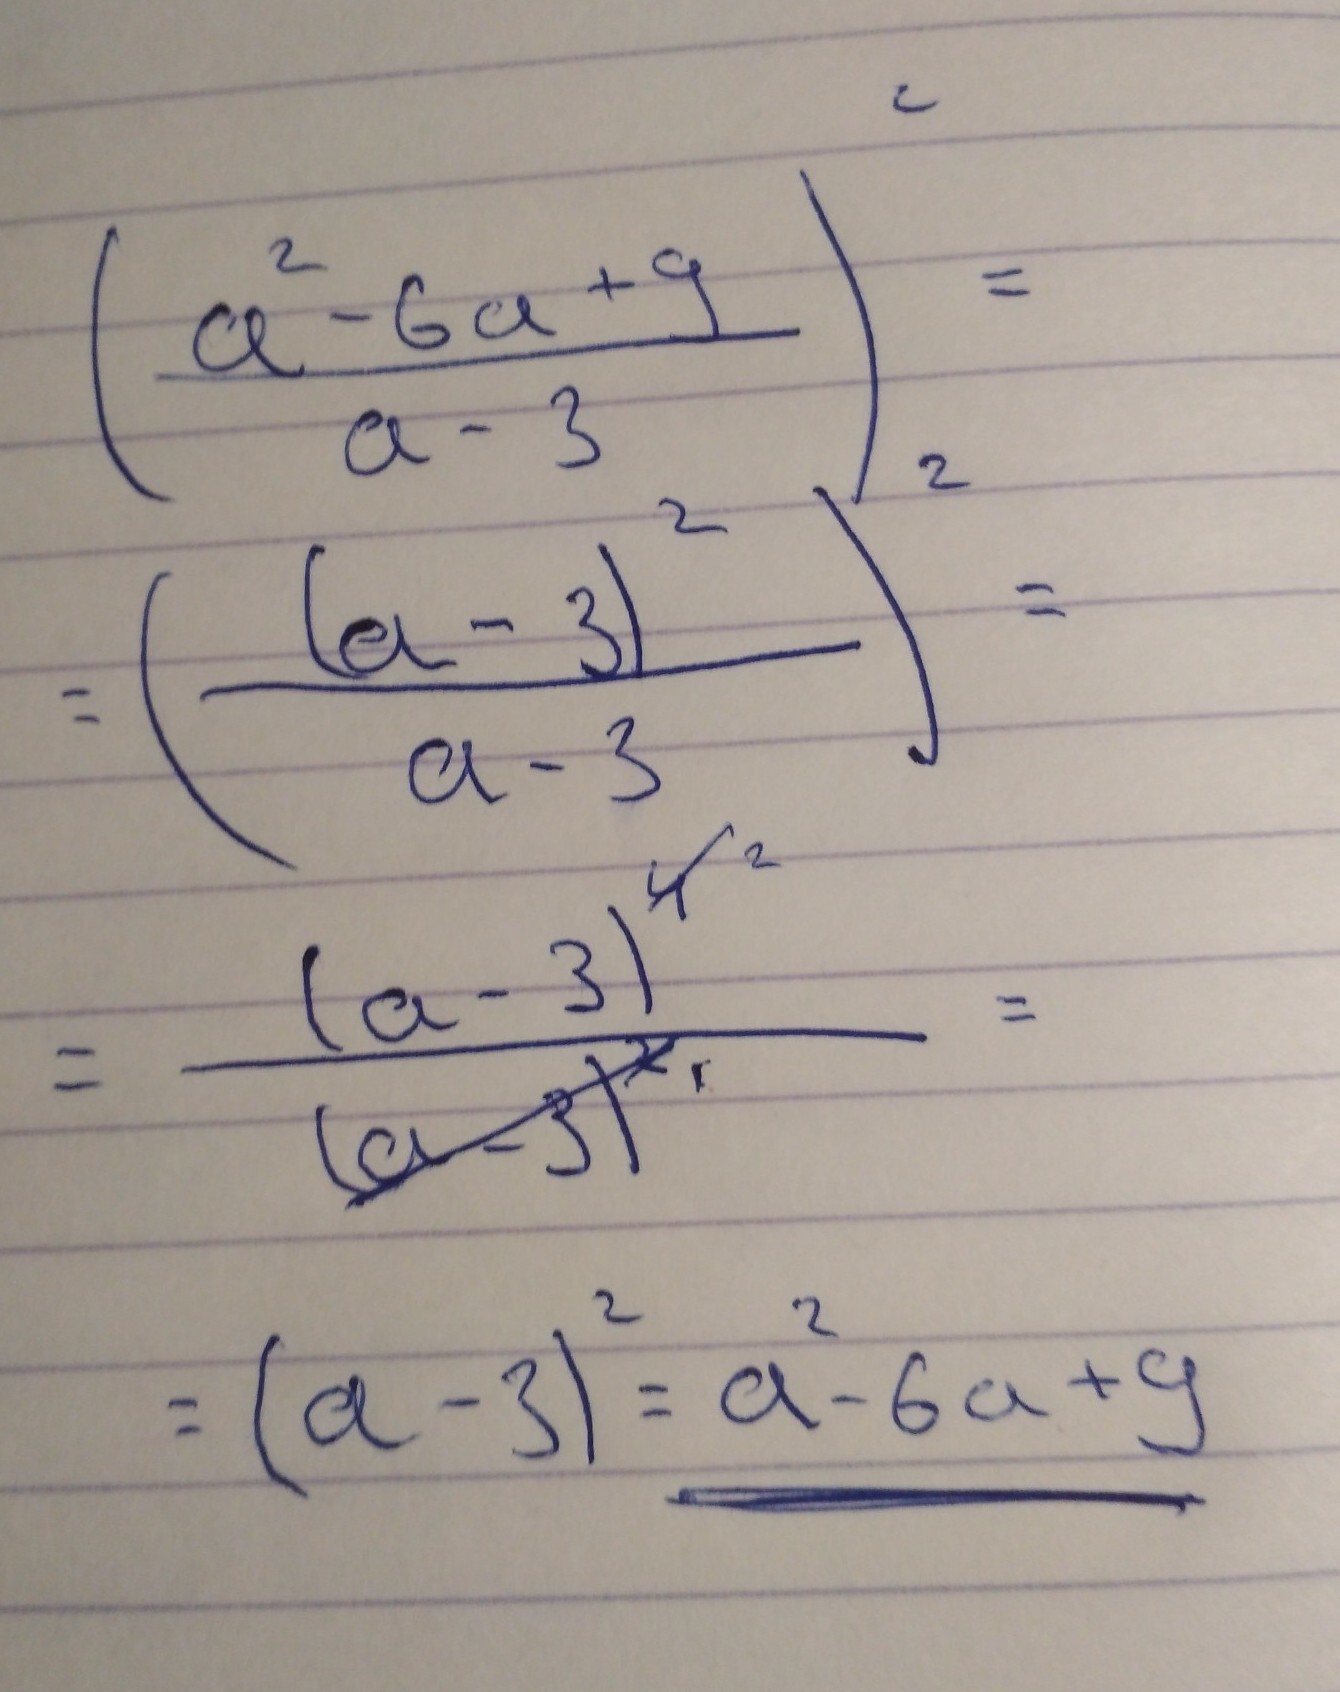 (a² - 6a + 9 / a - 3)² =
= ((a - 3)² / a - 3)² =
= (a - 3)⁴ ² / (a - 3)² ¹ =
= (a - 3)² = a² - 6a + 9